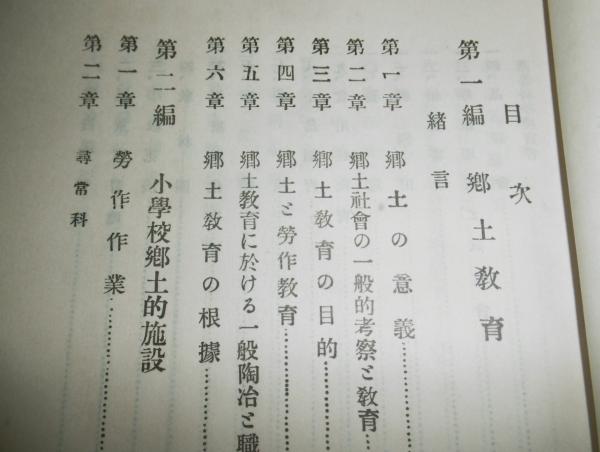 目次
第一編 鄕土敎育
緒言
第一章 鄕土の意義……
第二章 鄕土社會の一般的考察と敎育…
第三章 鄕土敎育の目的……
第四章 鄕土と勞作敎育……
第五章 鄕土敎育に於ける一般陶冶と職
第六章 鄕土敎育の根據……
第二編 小學校鄕土的施設
第一章 勞作作業……
第二章 尋常科